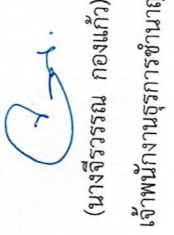 (นางจีรวรรณ กองแก้ว)
เจ้าพนักงานธุรการชำนาญ